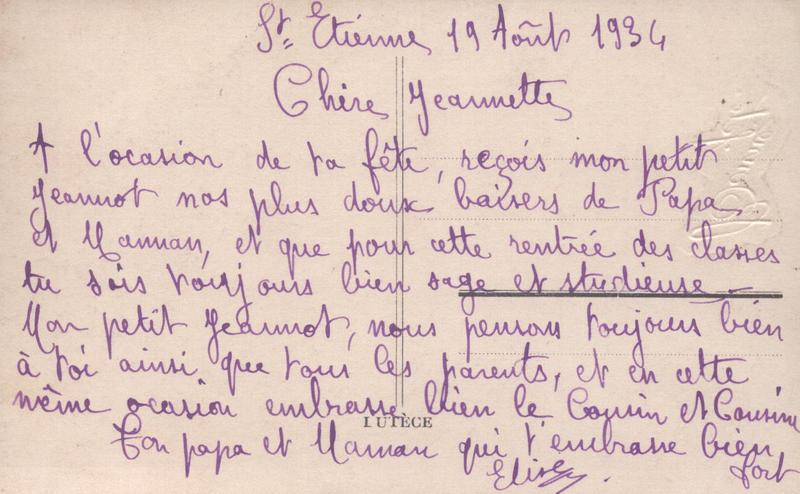 St Etiénne 19 Août 1934
Chère Jeannette
A l'ocasion de ta fête, reçois mon petit
Jeannot nos plus doux baisers de Papa
et Maman, et que pour cette rentrée des classes
tu sois toujours bien sage et studieuse
Mon petit Jeannot, nous pensons toujours bien
à toi ainsi que tous les parents, et en cette
même ocasion embrasse bien le Cousin et Cousine
LUTÈCE
Ton papa et Maman qui t'embrasse bien
fort
Elise